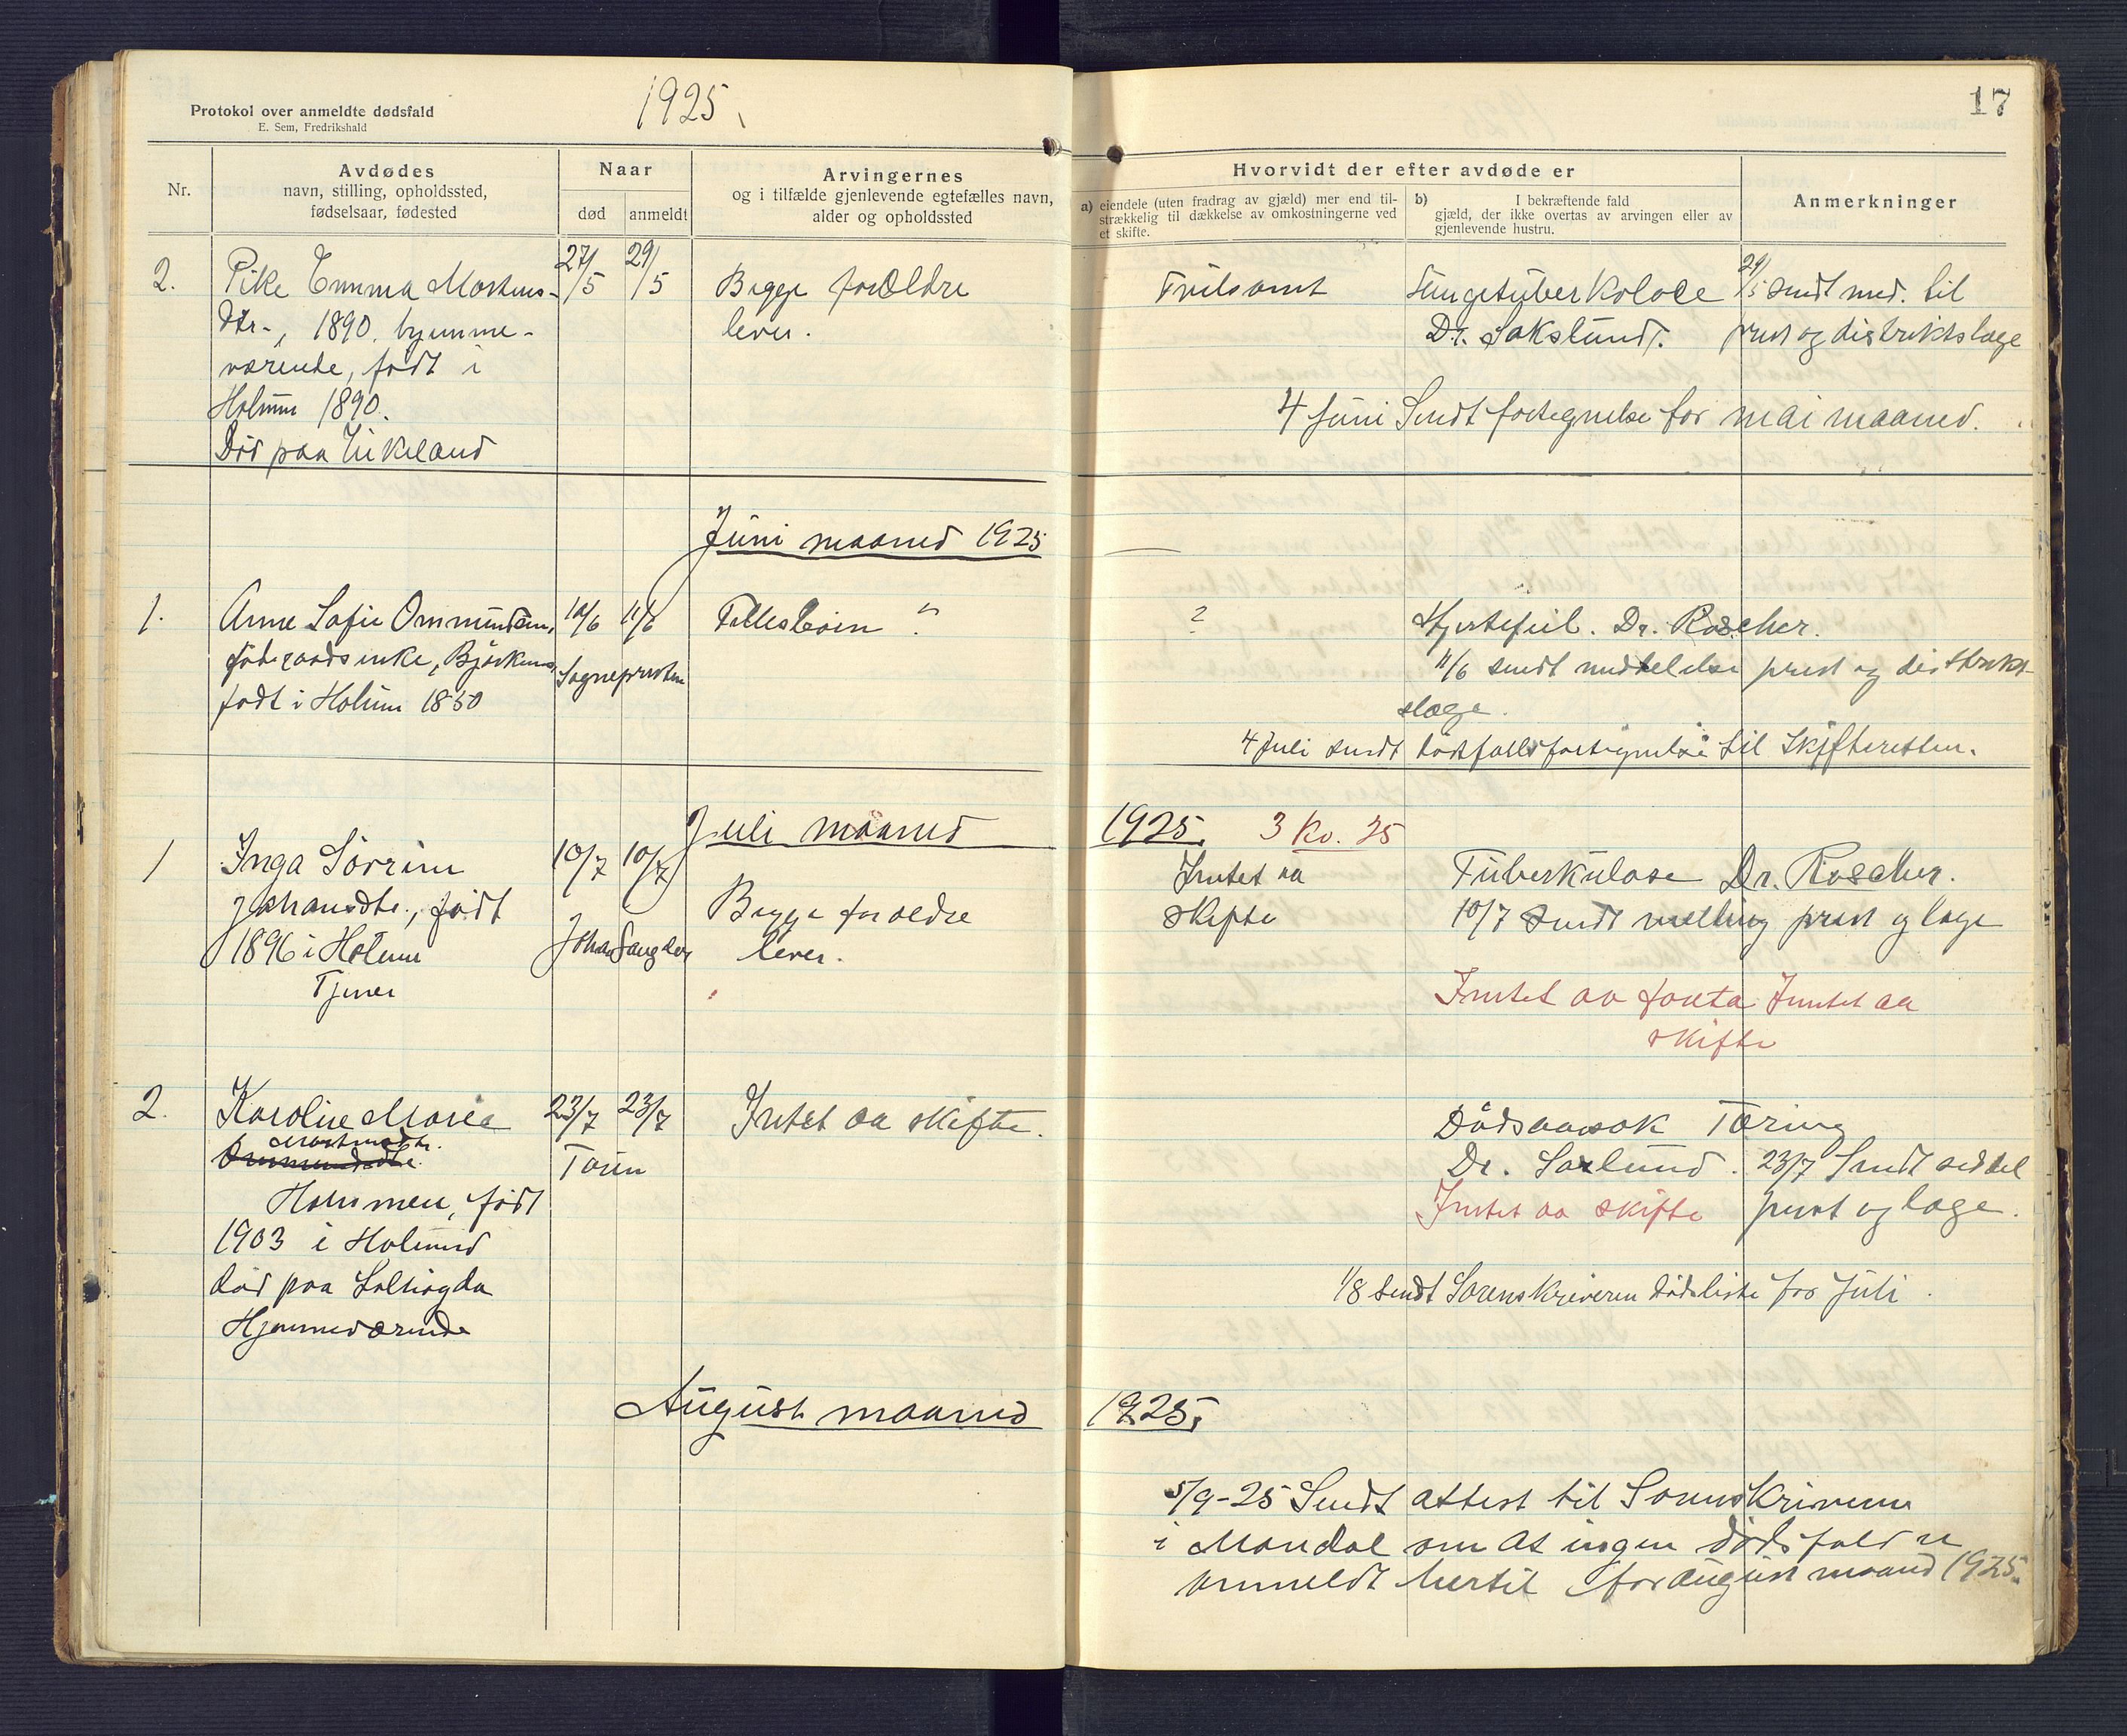 Protokol over anmeldte dødsfald
E. Sem, Fredrikshald
1925.
Nr.
Avdødes
navn, stilling, opholdssted,
fødselsaar, fødested
Naar
død
anmeldt
Arvingernes
og i tilfælde gjenlevende egtefælles navn,
alder og opholdssted
2.
Pike Emma Martens-
dtr., 1890. hjemme-
værende, født i
Holum 1890.
Død paa
27/5
29/5
Begge forældre
lever.
Juni maaned 1925
1.
Anne Sofie Ommundsen,
født i Holum 1850
10/6
11/6
Sognepresten
Juli maaned
1
Inga Sørrine
Johansdtr., født
1896 i Holum
Tjener
10/7
10/7
Johan
Begge foraeldre
lever.
2.
Karoline Marie
Holmmen, født
1903 i Holum
død paa
Hjemmeværende
23/7
23/7
Intet aa skifte.
August maaned
17
Hvorvidt der efter avdøde er
a) eiendele (uten fradrag av gjæld) mer end til-
strækkelig til dækkelse av omkostningerne ved
et skifte.
b) I bekræftende fald
gjæld, der ikke overtas av arvingen eller av
gjenlevende hustru.
Anmerkninger
Tvilsomt
Lungetuberkolose
Dr. Sakslund.
29/5 sendt med. til
prest og distriktslæge
4 Juni Sendt fortegnelse for mai maaned.
?
Hjertefeil. Dr. Roscher.
11/6 sendt meddelelse prest og distrikts-
læge.
4 Juli sendt dødsfaldsfortegnelse til Skifteretten.
1925. 3 kv. 25
Intet aa
skifte
Tuberkulose Dr. Roscher.
10/7 Sendt melding prest og læge
Intet aa skifte
Dødsaarsak Tæring
Dr. Saxlund. 23/7 Sendt seddel
Intet aa skifte prest og læge.
1/8 sendt Sorenskriveren dødsliste for Juli.
1925.
5/9-25 Sendt attest til Sorenskriveren
i Mandal om at ingen dødsfald er
anmeldt hertil for august maaned 1925.